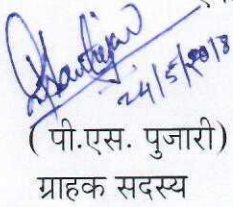 24/5/2018
( पी.एस. पुजारी)
ग्राहक सदस्य